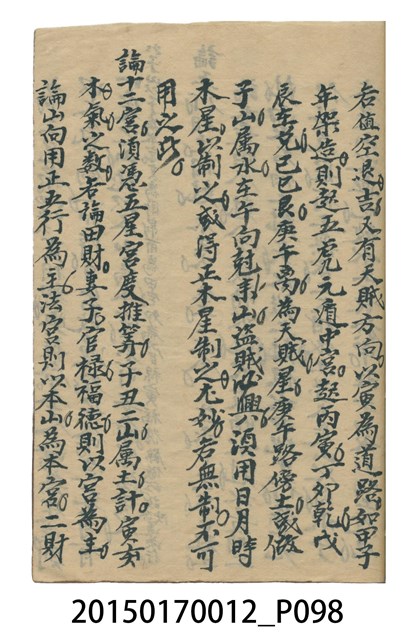 若值空退吉又有天賊方向以寅為道路如甲子
年架造則起五虎元遁中宮起丙寅丁卯乾戊
辰在兌己巳艮庚午离為天賊星庚午路傍土或做
子山属水在午向冠来山盜賊必興須用日月時
木星以制之或得正木星制之尤妙若無制不可
用之此
論十二宮須憑五星宮度推算子丑二山属土計寅亥
木氣之数若論田財妻子官禄福德則以宮為主
論山向用正五行為主法宮則以本山為本宮二財
20150170012_P098